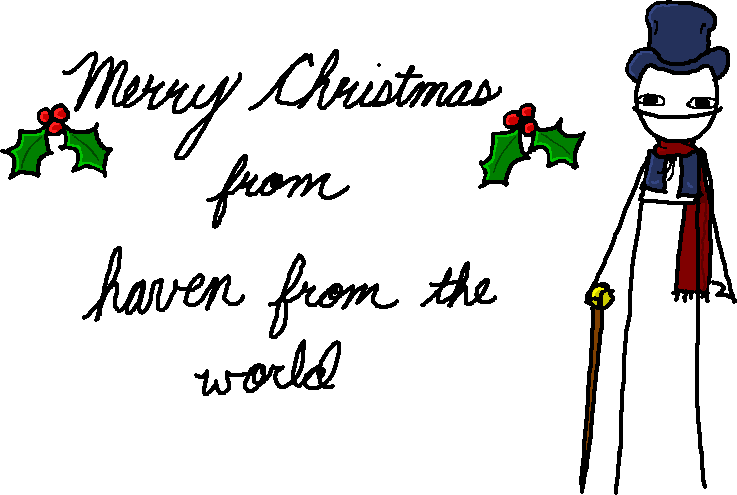 Merry Christmas
from
haven from the
world